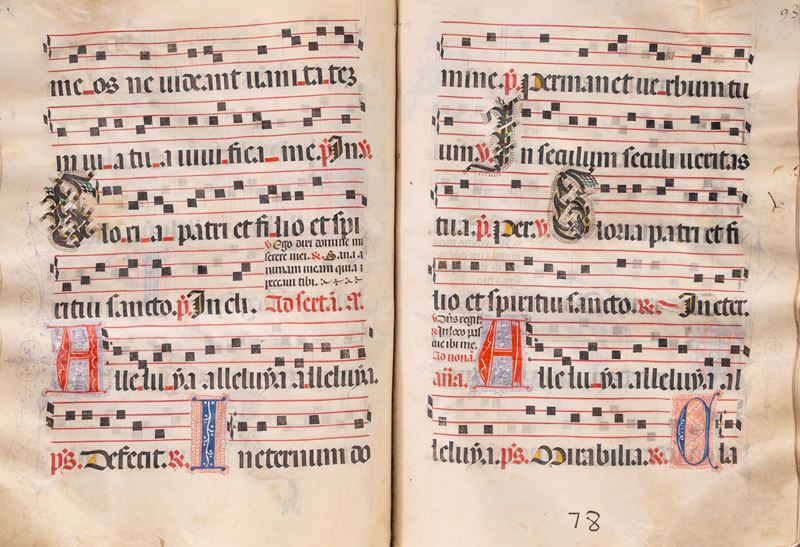 me_os ne uideant uani_ta_tez
in ui_a tu_a uiui_fi_ca_ me. p̃ In. v.
Glo_ri_a_ patri et fi_lio et spi
v Ego dixi domine mi
serere mei. R. Sana a
nimam meam quia
peccaui tibi.
ritui sancto. p̃ In eli. Ad sextā. A.
Alle_lu_ya alleluya alleluya.
p̃s. Defecit. R. Ineternum do
93
mine. p̃. permanet ue_rbum tu
um. v. In seculum seculi ueritas
tua. p̃. per. v. Gloria patri et fi
lio et spiritui sancto. R. In eter.
v Dñs regit
R In loco pas
cue ibi me.
Ad nonā.
añā. Alle_lu_ya alleluya al
leluya. p̃s. Mirabilia. R. Cla
78